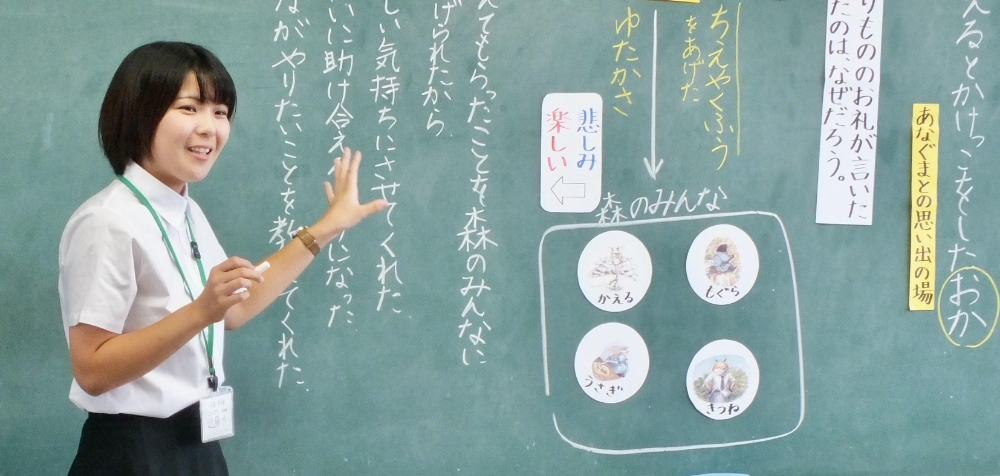 えるとかけっこをした
おか
あなぐまとの思い出の場
りもののお礼が言いた
たのは、なぜだろう。
ちえやくふう
をあげた
ゆたかさ
悲しみ
楽しい
森のみんな
かえる
もぐら
うさぎ
きつね
えてもらったことを森のみんなに
げられたから
しい気持ちにさせてくれた
いに助け合え
になった
がやりたいことを教
てくれた